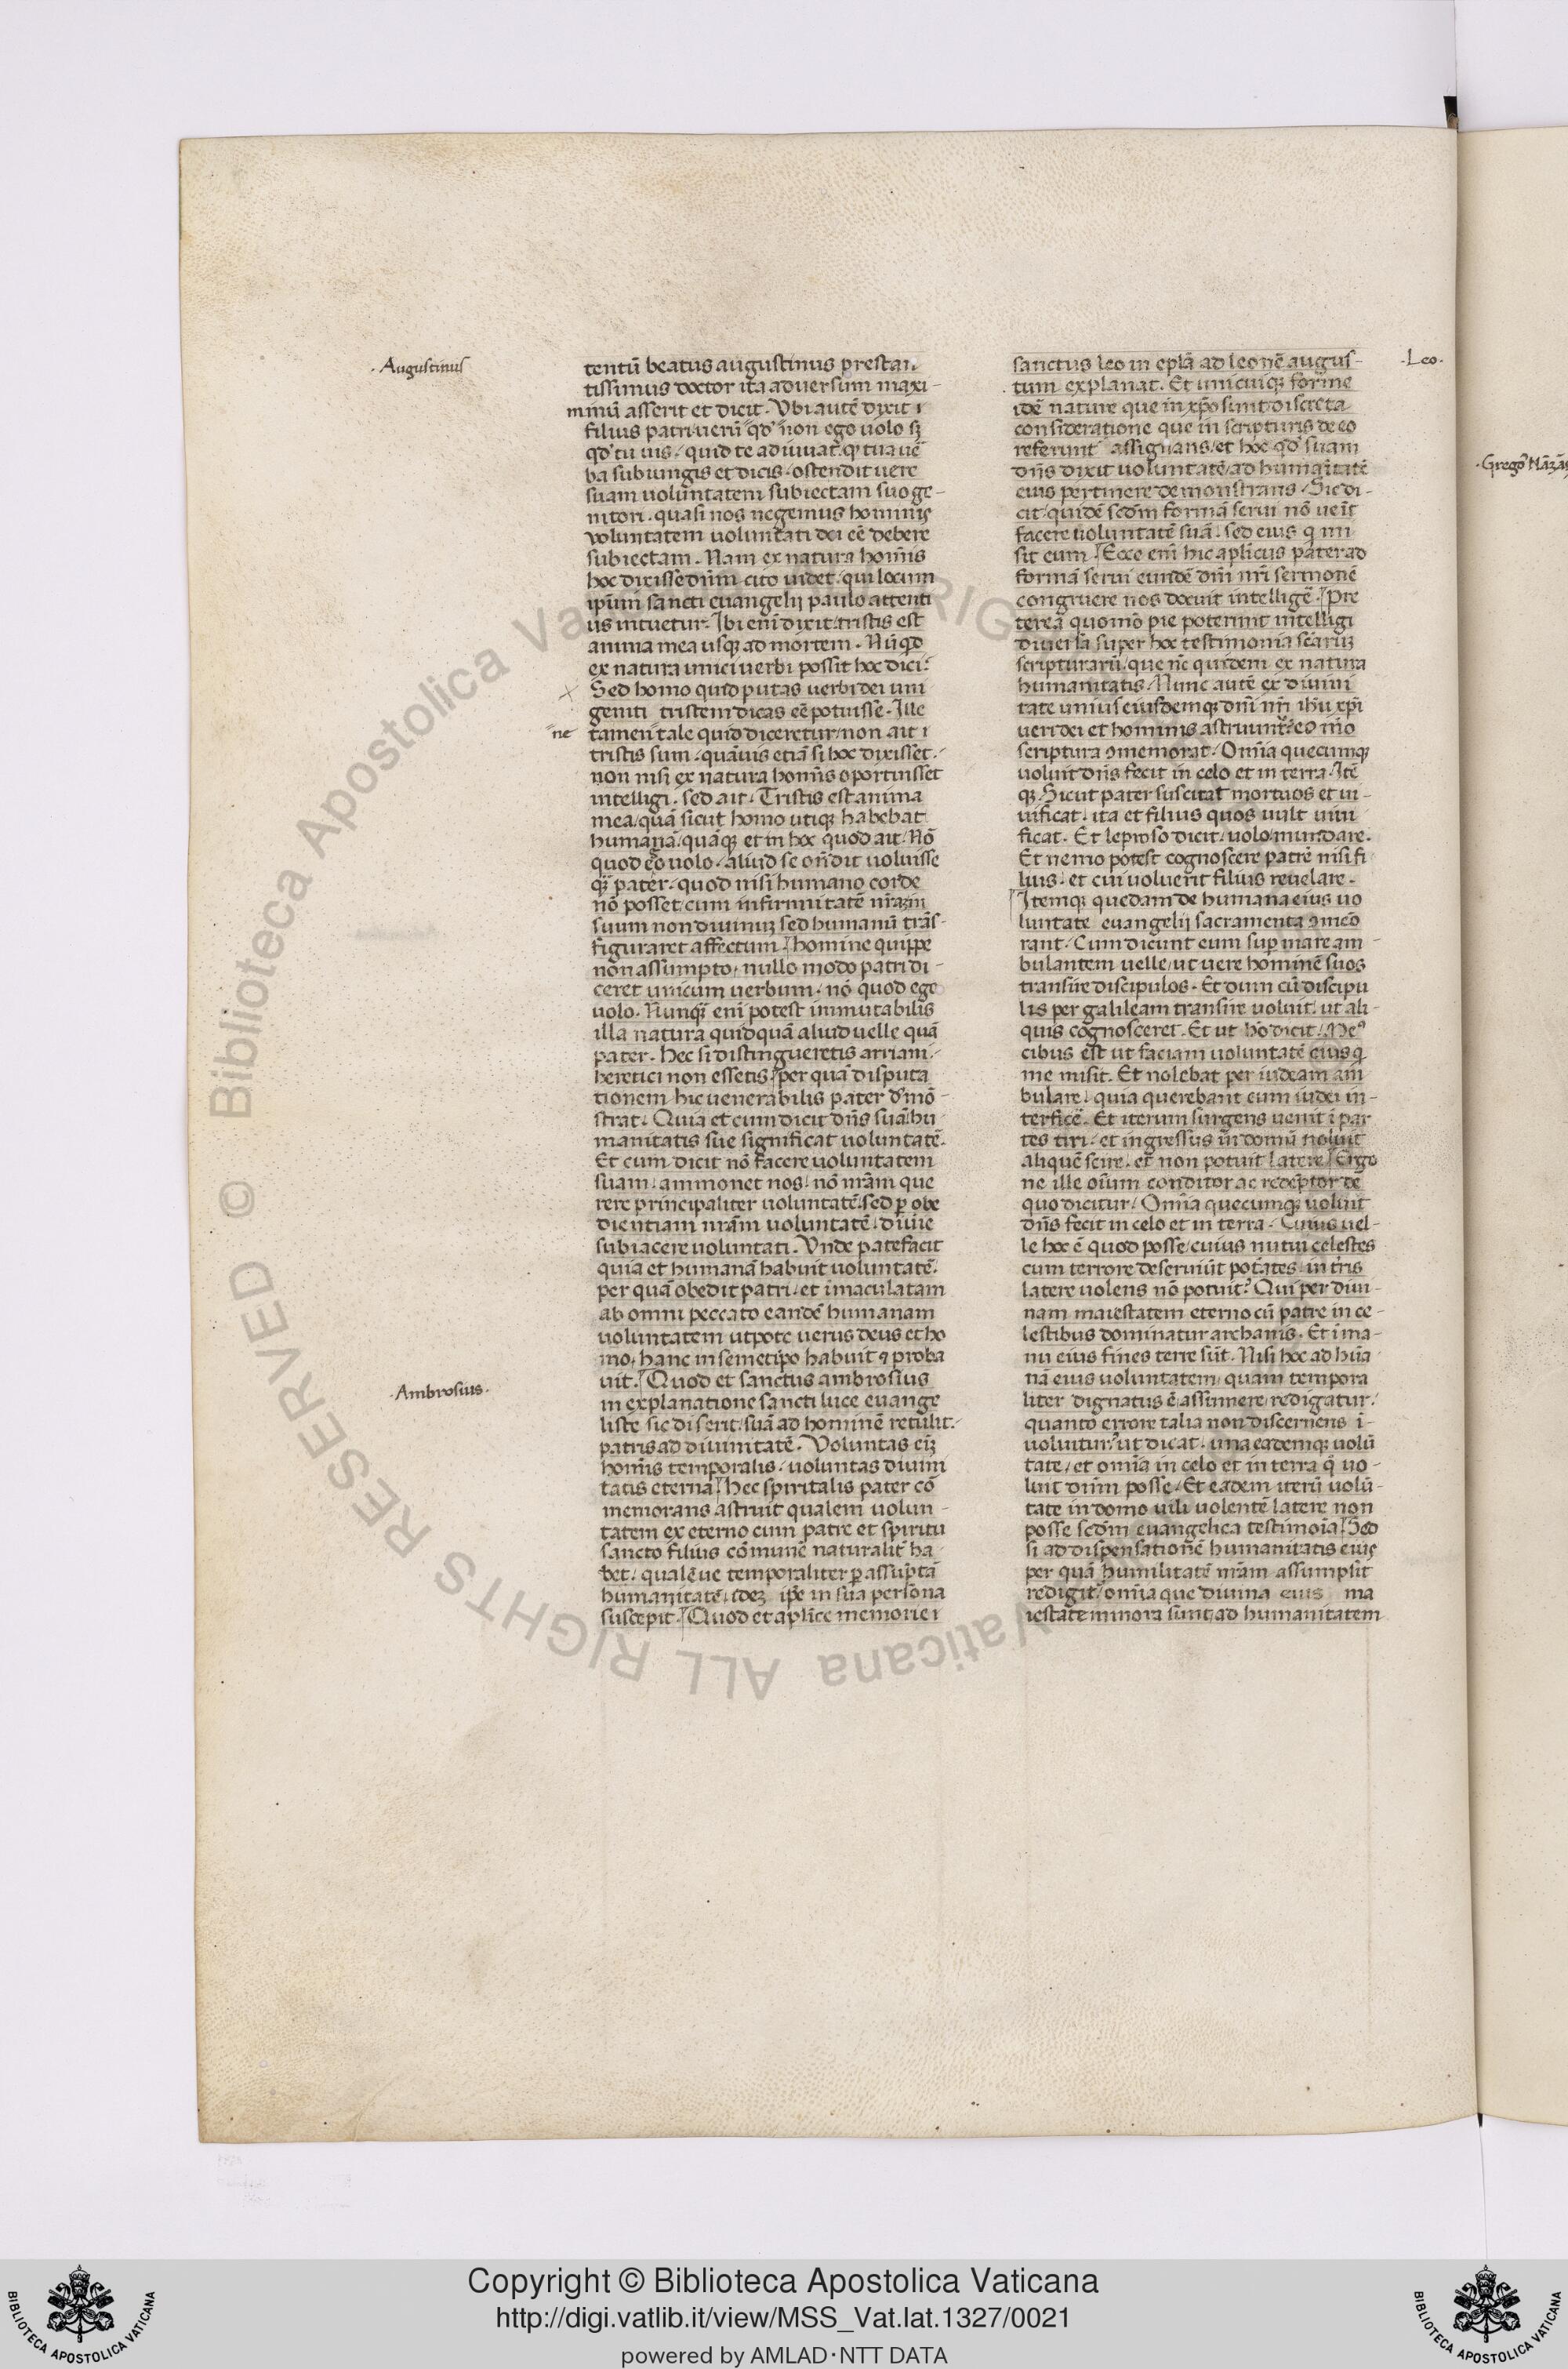 · Augustinus
tentū beatus augustinus prestan
tissimus doctor ita aduersum maxi-
minū asserit et dicit. Vbi autē dixit i
filius patri uerū qd' non ego uolo sȝ
qd' tu uis. quid te adiuuat. qꝫ tua uē
ba subiungis et dicis. ostendit uere
suam uoluntatem subiectam suo ge-
nitori. quasi nos negemus hominis
voluntatem uoluntati dei eē debere
subiectam. Nam ex natura hoīnis
hoc dixisse dnm cito uidet. qui locum
ipm̄ sancti euangelij paulo attenti
us intuetur. Ibi enī dixit. tristis est
anima mea usqꝫ ad mortem. Nūqd
ex natura unici uerbi possit hoc dici?
Sed homo quid putas uerbi dei uni
geniti tristem dicas eē potuisse. Ille
ne
tamen tale quid diceretur non ait i
tristis sum. quāuis etiā si hoc dixisset.
non nisi ex natura hoīnis oportuisset
intelligi. sed ait. Tristis est anima
mea, quā sicut homo utiqꝫ habebat
humanā. quāqꝫ et in hoc quod ait. Nō
quod ego uolo. aliud se ondit uoluisse
qȝ pater. quod nisi humano corde
nō posset cum infirmitatē nr̄az in
suum non diuinuȝ sed humanū trās-
figuraret affectum. homine quippe
non assumpto. nullo modo patri di-
ceret unicum uerbum. nō quod ego
uolo. Nunqȝ enī potest immutabilis
illa natura quidquā aliud uelle quā
pater. Hec si distingueretis arriani.
heretici non essetis. per quā disputa
tionem hic uenerabilis pater d'mō-
strat. Quia et cum dicit dn̄s suā. hu
manitatis sue significat uoluntatē.
Et cum dicit nō facere uoluntatem
suam. ammonet nos. nō nr̄am que
rere principaliter uoluntatē. sed p obe
dientiam nr̄am uoluntatē. diuie
subiacere uoluntati. Vnde patefacit
quia et humanā habuit uoluntatē.
per quā obedit patri. et imaculatam
ab omni peccato eandē humanam
uoluntatem utpote uerus deus et ho
mo. hanc in semetipo habuit ⁊ proba
uit. Quod et sanctus ambrosius
· Ambrosius ·
in explanatione sancti luce euange
liste sic diserit. suā ad hominē retulit.
patris ad diuinitatē. Voluntas eiȝ
hoīnis temporalis. uoluntas diuini
tatis eterna. Hec spiritalis pater cō
memorans astruit qualem uolun-
tatem ex eterno cum patre et spiritu
sancto filius cōmunē naturalit̄ ha-
bet. qualēue temporaliter p assūptā
humanitatē. idez ipse in sua persōna
suscepit. Quod et aplīce memorie i
sanctus leo in eplā ad leonē augus-
· Leo ·
tum explanat. Et unicuiqꝫ forme
idē nature que in xp̄o sunt. discreta
consideratione que in scripturis de eo
referunt assignans. et hoc qd' suam
dn̄s dixit uoluntatē. ad humaītatē
eius pertinere demonstrans. Sic di-
cit. quidē scdm formā serui nō ueīt
facere uoluntatē suā. sed eius q mi
sit eum. Ecce enī hic aplīcus pater ad
formā serui eundē dn̄i nr̄i sermonē
congruere nos docuit intelligē. Pre
terea quomō pie poterint intelligi
diuersa super hoc testimonia scāruȝ
scripturarū. que nc̄ quidem ex natura
humanitatis. Nunc autē ex diuini
tate unius eiusdemqꝫ dn̄i nr̄i ihu xp̄i
ueri dei et hominis astruunt̄. eo mō
scriptura ꝯmemorat. Omīa quecumqꝫ
uoluit dn̄s fecit in celo et in terra. Itē
qꝫ. Sicut pater suscitat mortuos et ui-
uificat. ita et filius quos uult uiui
ficat. Et leproso dicit. uolo mundare.
Et nemo potest cognoscere patrē nisi fi
lius. et cui uoluerit filius reuelare.
Itemqꝫ quedam de humana eius uo
luntate euangelij sacramenta ꝯmēo
rant. Cum dicunt eum sup mare am-
bulantem uelle. ut uere hominē suos
transire discipulos. Et dum cū discipu
lis per galileam transire uoluit. ut ali-
quis cognosceret. Et ut hō dicit. Meꝰ
cibus est ut faciam uoluntatē eius q
me misit. Et nolebat per iudeam am
bulare. quia querebant eum iudei in-
terficē. Et iterum surgens uenit ī par
tes tiri. et ingressus in domū noluit
aliquē scire. et non potuit latere. Ergo
ne ille oīum conditor ac redēptor de
quo dicitur. Omīa quecumqꝫ uoluit
dn̄s fecit in celo et in terra. Cuius uel-
le hoc ē quod posse. cuius nutui celestes
cum terrore deseruiūt pot̄ates. in tris
latere uolens nō potuit? Qui per diui-
nam maiestatem eterno cū patre in ce-
lestibus dominatur archanis. Et ī ma-
nu eius fines terre sūt. Nisi hoc ad hūa
nā eius uoluntatem. quam tempora
liter dignatus ē assumere. redigatur.
quanto errore talia non discernens ī-
uoluitur. ut dicat. una eademqꝫ uolū
tate. et omīa in celo et in terra q̄ uo-
luit dnm posse. Et eadem iterū uolū-
tate in domo uili uolentē latere non
posse scdm euangelica testimoīa. Sed
si ad dispensationē humanitatis eius
per quā humilitatē nr̄am assumpsit
redigit̄. omīa que diuina eius ma
iestate minora sunt. ad humanitatem
Copyright © Biblioteca Apostolica Vaticana
http://digi.vatlib.it/view/MSS_Vat.lat.1327/0021
powered by AMLAD·NTT DATA
BIBLIOTECA APOSTOLICA VATICANA
BIBLIOTECA APOSTOLICA VATICANA